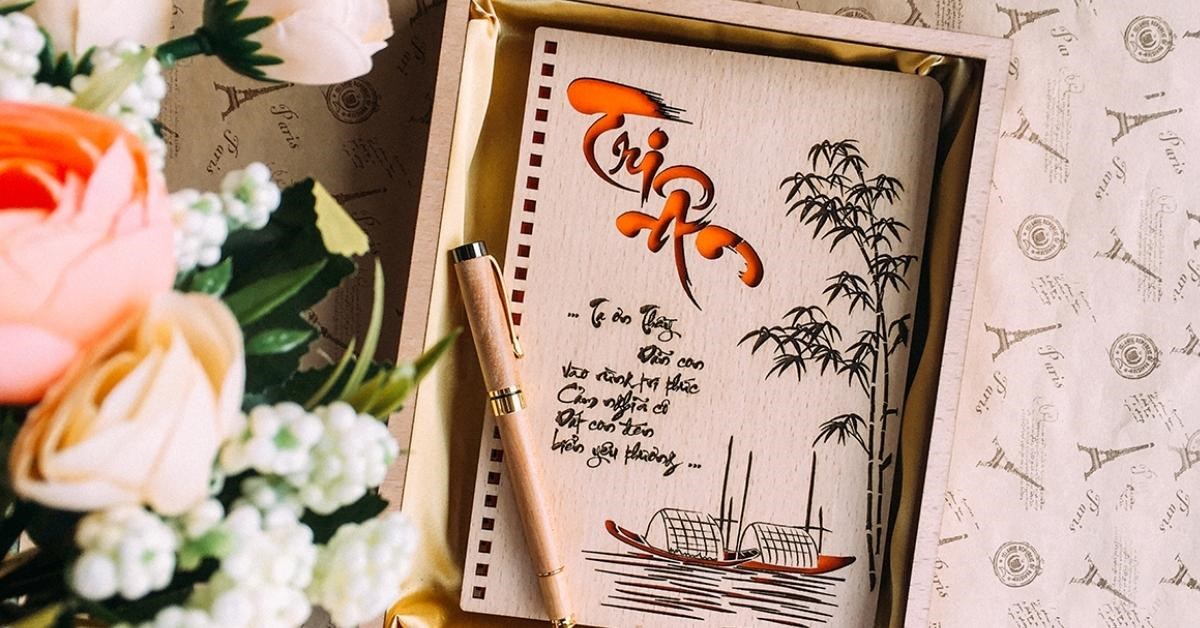 Tri Ân
... Tạ ơn Thầy
Dẫn con
vào rừng tri thức
Cảm nghĩa cô
Dắt con đến
biển yêu thương ...
Paris
Paris
Paris
Paris
Paris
Paris
Paris